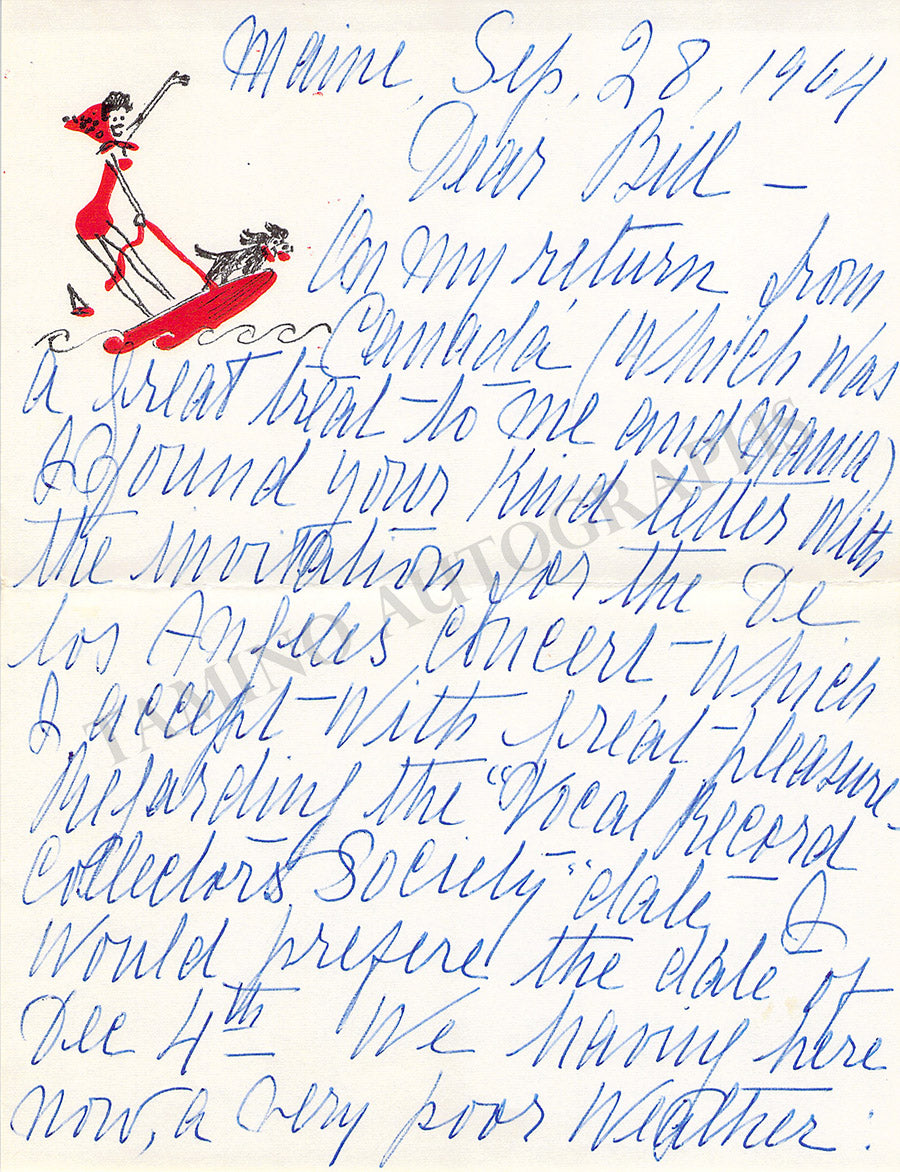 Maine, Sep, 28, 1964
Dear Bill —
On my return from
Canada, (Which was
a great treat to me and Mama)
I found your kind letter with
the invitation for the De
los Angeles concert, which
I accept with great pleasure.
Regarding the "Vocal Record
Collectors Society" date, I
would prefere the date of
Dec 4th We having here
now, a very poor weather:
TAMINO AUTOGRAPHS